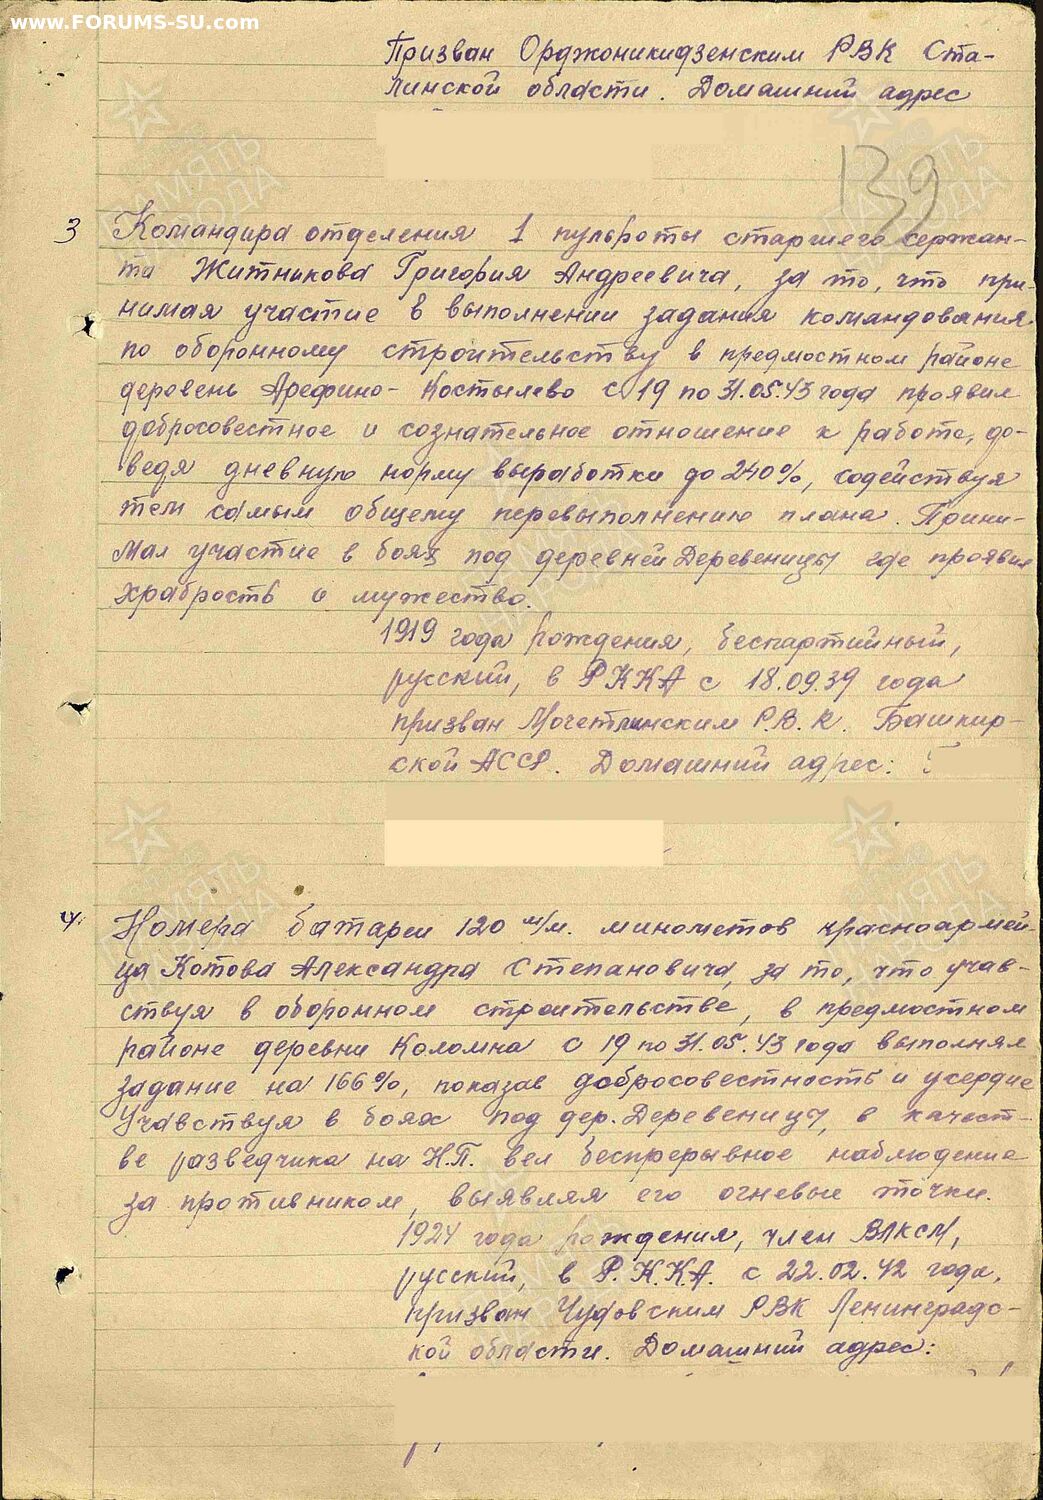 www.FORUMS-SU.com
Призван Орджоникидзенским РВК Ста-
линской области. Домашний адрес
139
3 Командира отделения 1 пульроты старшего сержан-
та Житникова Григория Андреевича, за то, что при-
нимая участие в выполнении задания командования
по оборонному строительству в предмостном районе
деревень Арефино - Костылево с 19 по 31.05.43 года проявил
добросовестное и сознательное отношение к работе, до-
ведя дневную норму выработки до 240%, содействуя
тем самым общему перевыполнению плана. Прини-
мал участие в боях под деревней Деревеницы где проявил
храбрость и мужество.
1919 года рождения, беспартийный,
русский, в РККА с 18.09.39 года
призван Мочетлинским Р.В.К. Башкир-
ской АССР. Домашний адрес:
4. Номера батареи 120 м/м. минометов красноармей-
ца Котова Александра Степановича, за то, что учав-
ствуя в оборонном строительстве, в предмостном
районе деревни Коломна с 19 по 31.05.43 года выполнял
задание на 166%, показав добросовестность и усердие
Учавствуя в боях под дер. Деревеницы, в качест-
ве разведчика на Н.П. вел беспрерывное наблюдение
за противником, выявляя его огневые точки.
1924 года рождения, член ВЛКСМ,
русский, в Р.К.К.А. с 22.02.42 года,
призван Чудовским РВК Ленинградс-
кой области. Домашний адрес:
ПАМЯТЬ
НАРОДА
ПАМЯТЬ
НАРОДА
ПАМЯТЬ
НАРОДА
ПАМЯТЬ
НАРОДА